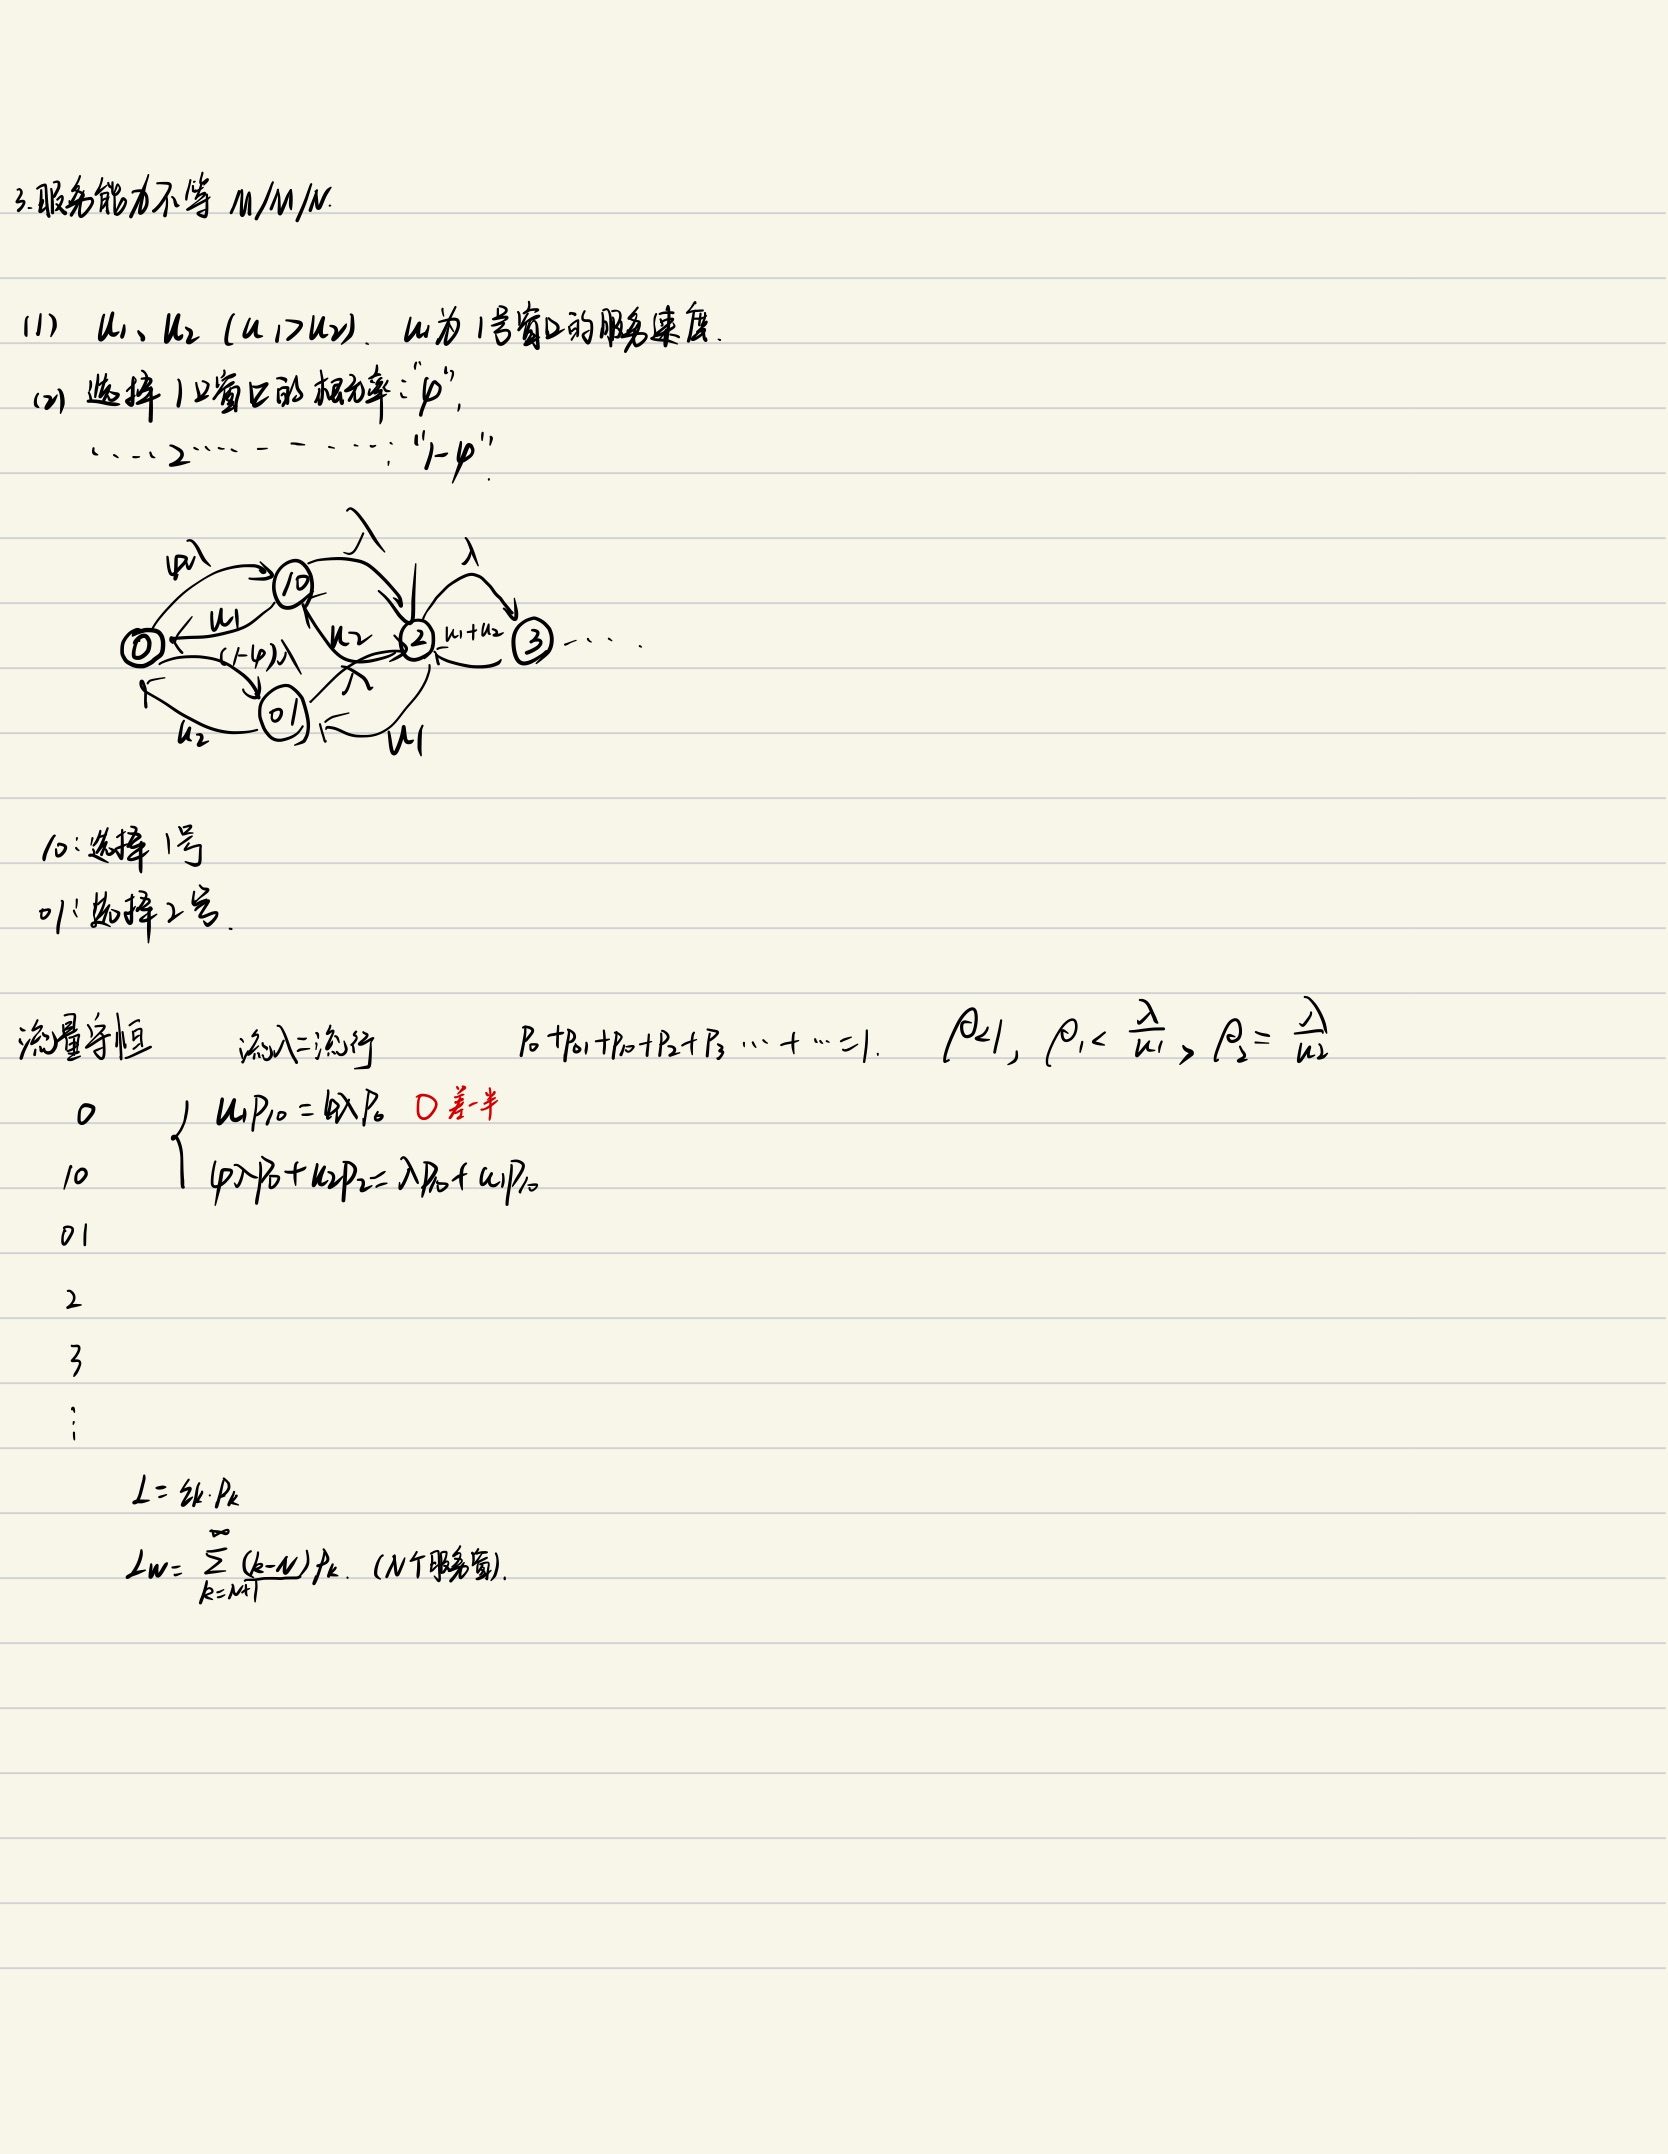 3.服务能力不等 M/M/N.
(1) u1、u2 (u1>u2). u1为1号窗口的服务速度.
(2) 选择1口窗口的概率:"φ",
....2.... - - ....: "1-φ".
φλ
λ
λ
10
u1
u2
0
2
u1+u2
3 ....
(1-φ)λ
λ
01
u2
u1
10:选择1号
01:选择2号.
流量守恒 流入=流行 P0+P01+P10+P2+P3 ...+...=1. ρ<1, ρ1< λ/u1, ρ2= λ/u2
0 { u1P10=φλP0 0差一半
10 φλP0+u2P2=λP10+u1P10
01
2
3
⋮
L=Σk·Pk
Lw= Σ_{k=N+1}^{∞} (k-N)Pk. (N个服务窗).